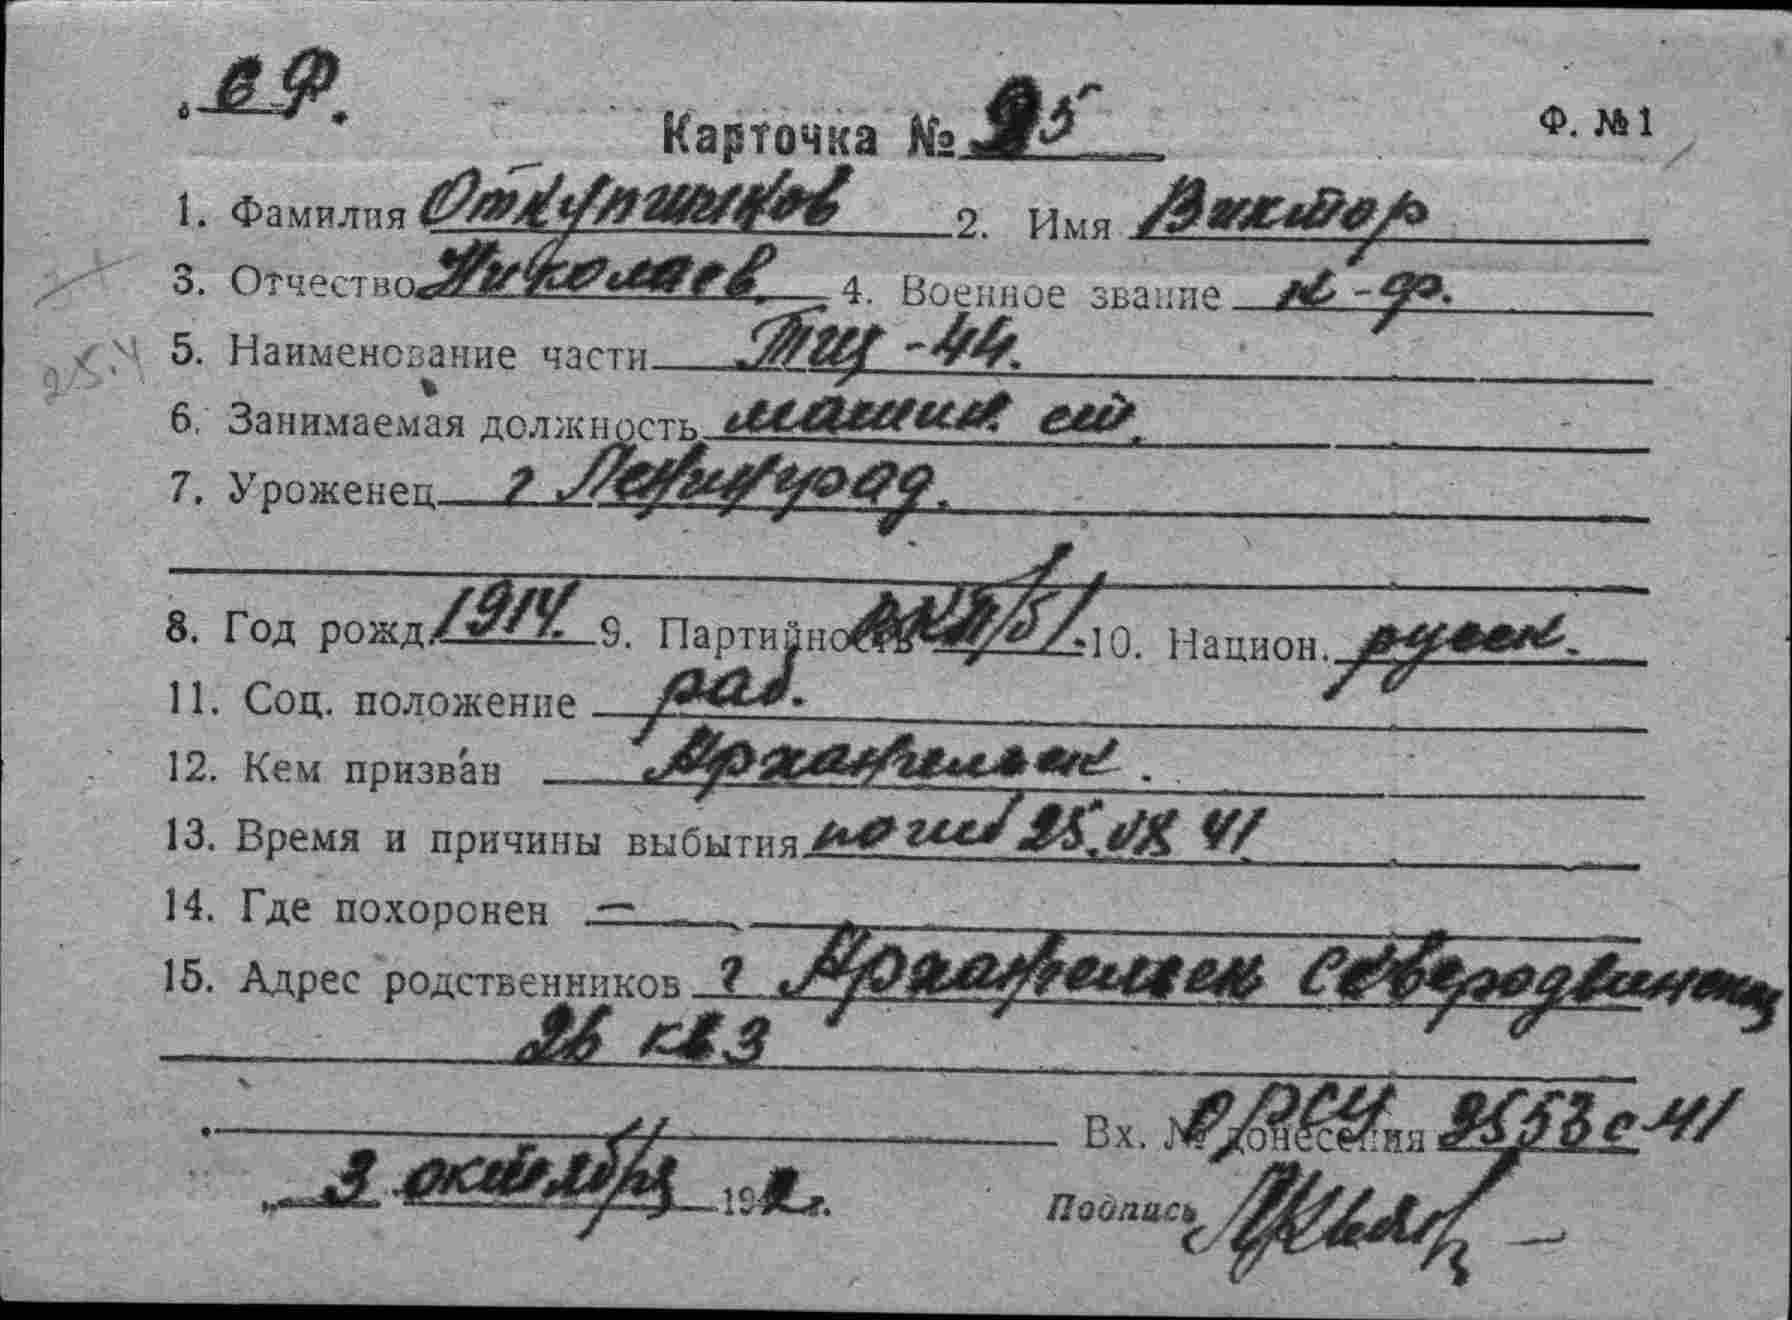 ВФ.
Карточка № 95 Ф. №1
1. Фамилия Откупщиков 2. Имя Виктор
3. Отчество Николаев. 4. Военное звание к-ф.
5. Наименование части Тщ-44.
6. Занимаемая должность машин. ст.
7. Уроженец г Ленинград.
8. Год рожд. 1914. 9. Партийность ВКП/б/. 10. Национ. русск.
11. Соц. положение раб.
12. Кем призван Архангельск.
13. Время и причины выбытия погиб 25.VIII 41
14. Где похоронен —
15. Адрес родственников г Архангельск Северодвинск
26 кв 3
Вх. № донесения 9553с-41
„ 3 октября 194 г. Подпись